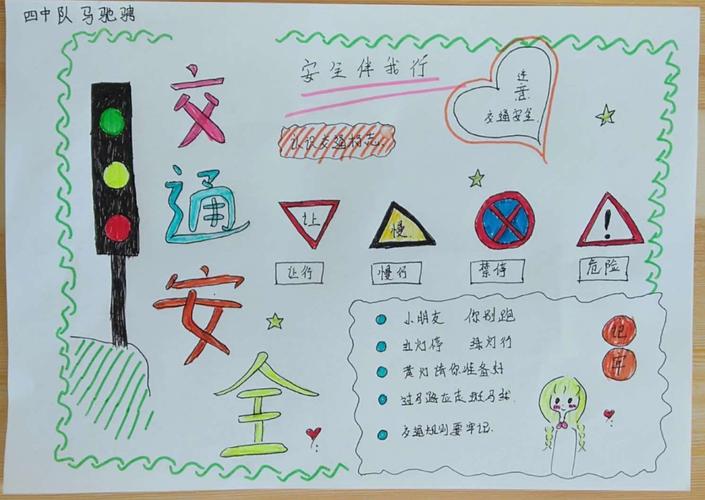 四中队 马驰骋
交
通
安
全
安全伴我行
注
意
交通安全.
认识交通标志.
让
慢
!
让行
慢行
禁停
危险
小朋友 你别跑
红灯停 绿灯行
黄灯请你准备好
过马路应走斑马线.
交通规则要牢记.
记
牢